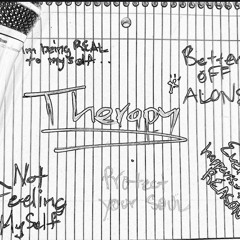 Im being REAL
to myself...
Better
OFF
ALONE
Therapy
Not
Feeling
Myself
Protect
your Soul